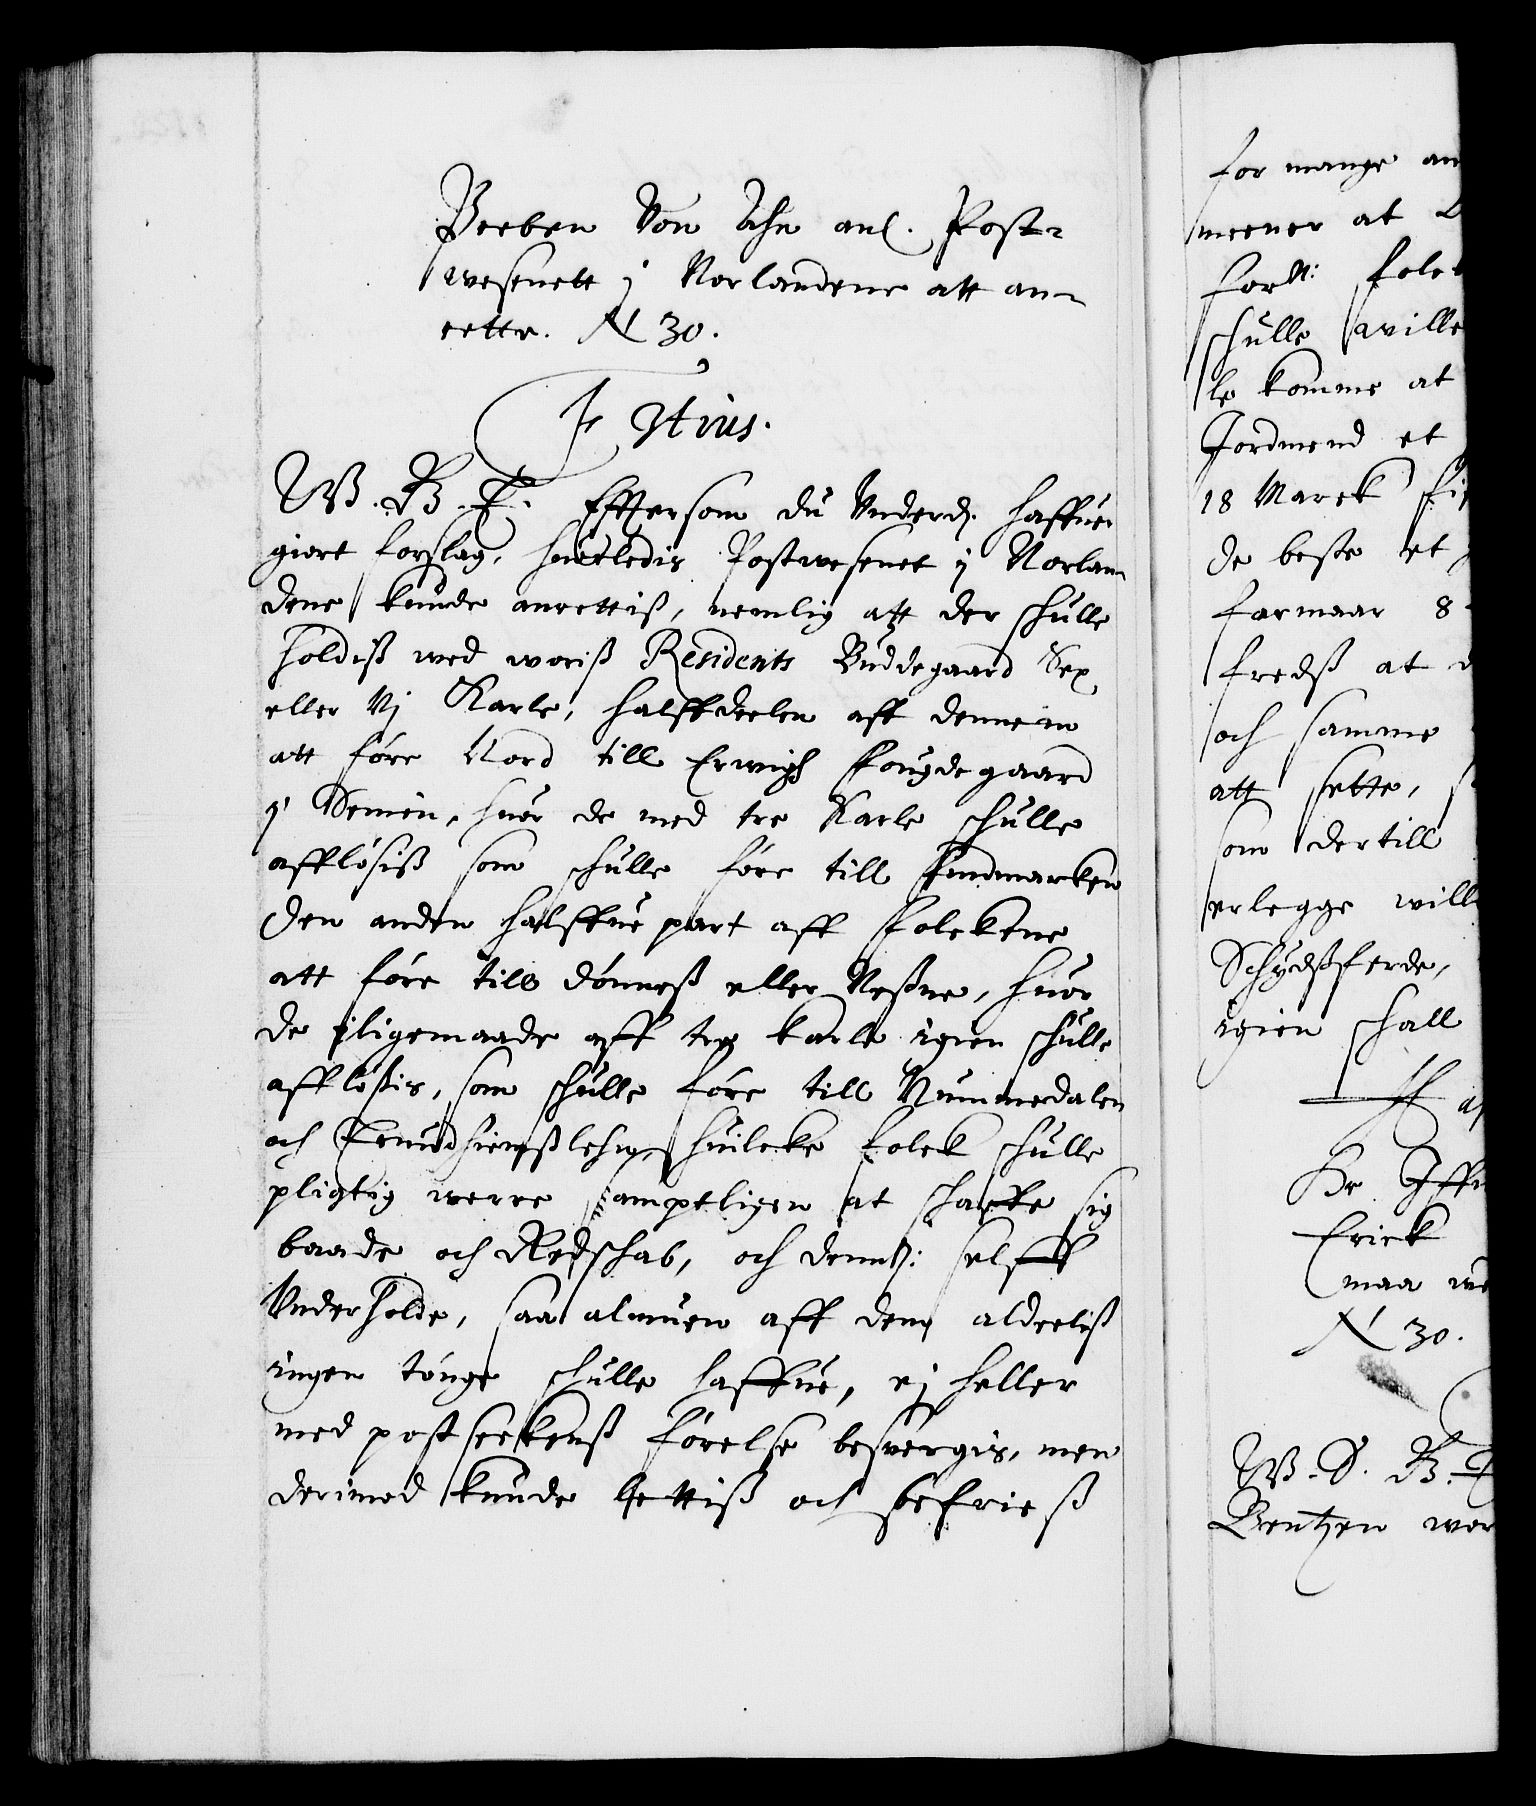 Preben Von Ahn anl. Post-
wesenett j Norlandene att an-
rette. N 30.
F 3tius.
W. B. T. Efftersom du Underd. haffuer
giort forslag, huorledis Postwesenet ÿ Norlan-
dene kunde anrettiß, nemlig att der schulle
holdiß wed woriß Residents Buddegaard Sex
eller Vj Karle, halffdeelen aff dennem
att före Nord till Erwigh Fougdegaard
y Senien, huor de med tre Karle schulle
afflösiß som schulle före till Findmarken
den anden halffue part aff Folckene
att före till Dönneß eller Neßne, huor
de iligemaade aff tre karle igien schulle
afflößis, som schulle före till Nummedalen
och Trundhiemßlehn, huilcke folck schulle
pligtig werre samptligen at schaffe sig
baade och Redschab, och dennß: selff
Underholde, saa almuen aff dem alderliß
ingen tönge schulle haffue, ej heller
med postseckenß förelse besuergis, men
derimod kunde lettiß och befrieß
for mange an
meener at
forn: folck
schulle wille
le komme at
Jordmend et
18 Marck fi
de beste et
farmaar 8
fredß at
och samme
att sette,
som dertill
erlegge will
Schydßferde,
igien schall
Hr Iffu
Erick
maa we
N 30.
W. S. B. T
Bentzen wor